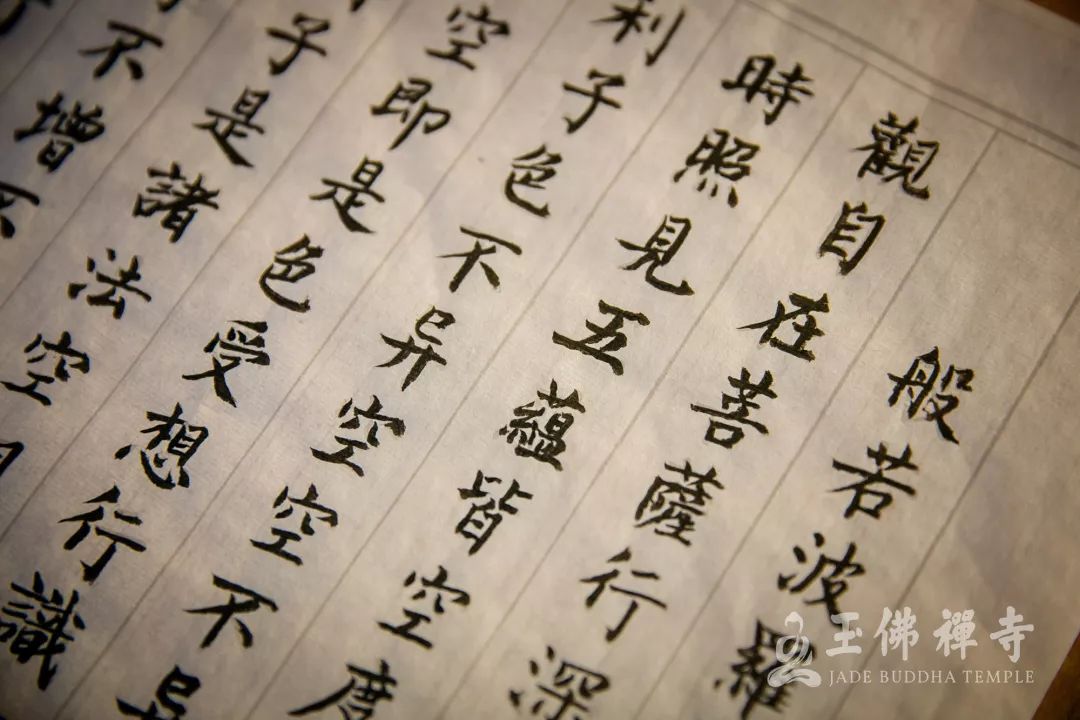 般若波羅
觀自在菩薩行深
時照見五蘊皆空度
利子色不异空空不异
空即是色受想行識
子是諸法空
不增不
玉佛禪寺
JADE BUDDHA TEMPLE